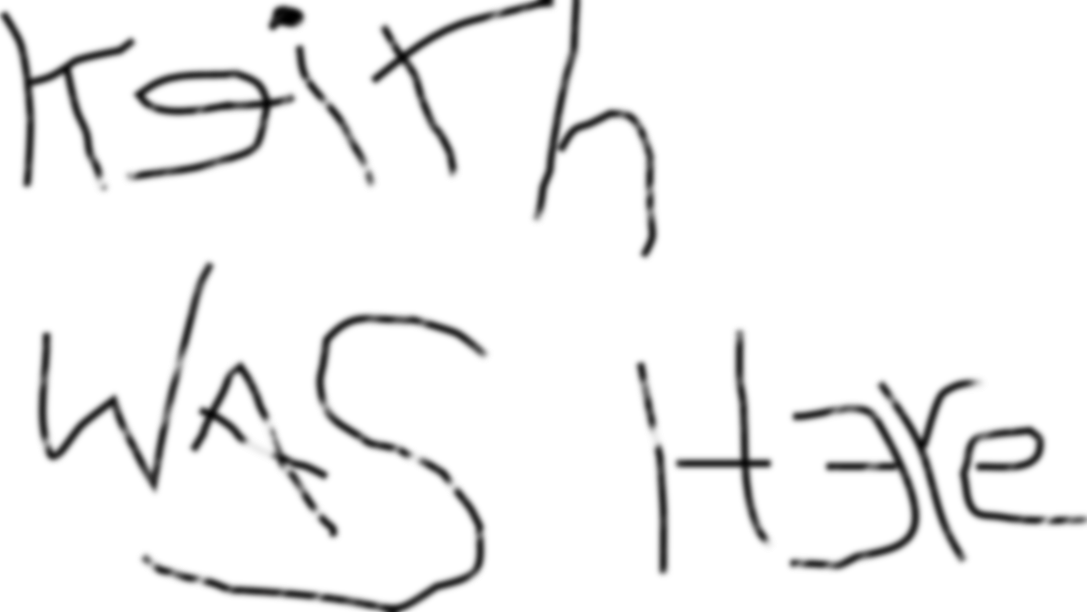 Keith
WAS HEre